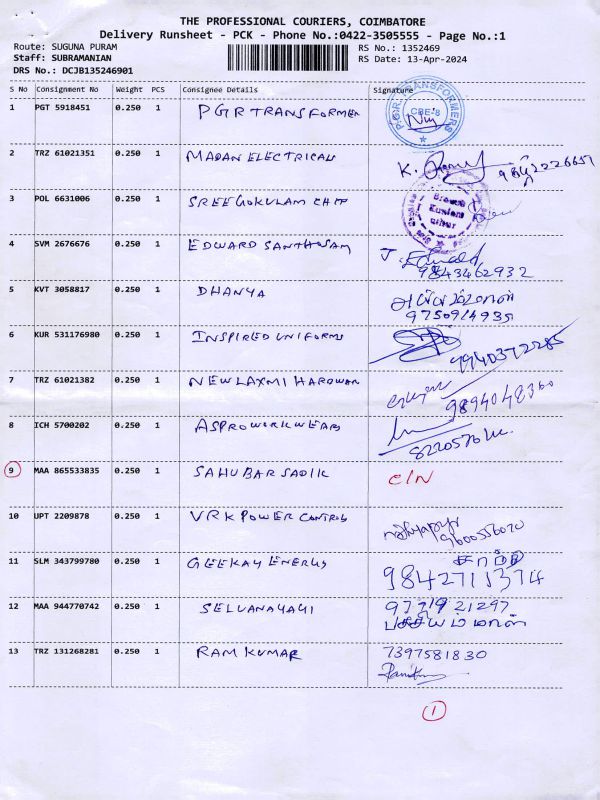 THE PROFESSIONAL COURIERS, COIMBATORE
Delivery Runsheet - PCK - Phone No.:0422-3505555 - Page No.:1
Route: SUGUNA PURAM RS No.: 1352469
Staff: SUBRAMANIAN RS Date: 13-Apr-2024
DRS No.: DCJB135246901
S No Consignment No Weight PCS Consignee Details Signature
1 PGT 5918451 0.250 1 PGR TRANSFORMER P.G.R. TRANSFORMERS CBE-8
2 TRZ 61021351 0.250 1 MADAN ELECTRICALS K.
3 POL 6631006 0.250 1 SREE GOKULAM CHIT
4 SVM 2676676 0.250 1 EDWARD SANTHOSAM J. Edward
9843462932
5 KVT 3058817 0.250 1 DHANYA
9750914935
6 KUR 531176980 0.250 1 INSPIRED UNIFORMS 9940372285
7 TRZ 61021382 0.250 1 NEW LAXMI HARDWAR 9894048360
8 ICH 5700202 0.250 1 ASPRO WORKWEARS
9 MAA 865533835 0.250 1 SAHUBAR SADIK C/N
10 UPT 2209878 0.250 1 VRK POWER CONTROLS 9600556020
11 SLM 343799780 0.250 1 GEEKAY ENERGY
9842711374
12 MAA 944770742 0.250 1 SELVANAYAGI
13 TRZ 131268281 0.250 1 RAM KUMAR 7397581830
1